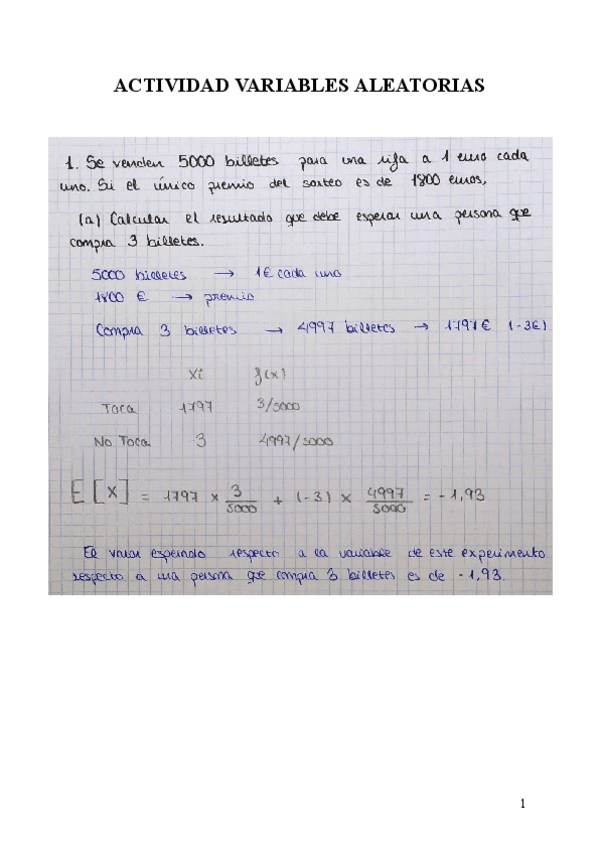 ACTIVIDAD VARIABLES ALEATORIAS
1. Se venden 5000 billetes para una rifa a 1 euro cada
uno. Si el único premio del sorteo es de 1800 euros,
(a) Calcular el resultado que debe esperar una persona que
compra 3 billetes.
5000 billetes → 1€ cada uno
1800 € → premio
Compra 3 billetes → 4997 billetes → 1797€ (-3€)
Xi f(x)
Toca 1797 3/5000
No Toca -3 4997/5000
E[X] = 1797 × 3/5000 + (-3) × 4997/5000 = -1,93
El valor esperado respecto a la variable de este experimento
respecto a una persona que compra 3 billetes es de -1,93.
1